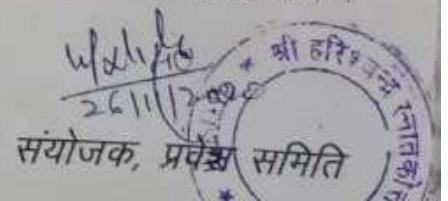 26/11/2020
संयोजक, प्रवेश समिति
* श्री हरिश्चन्द्र स्नातकोत्त